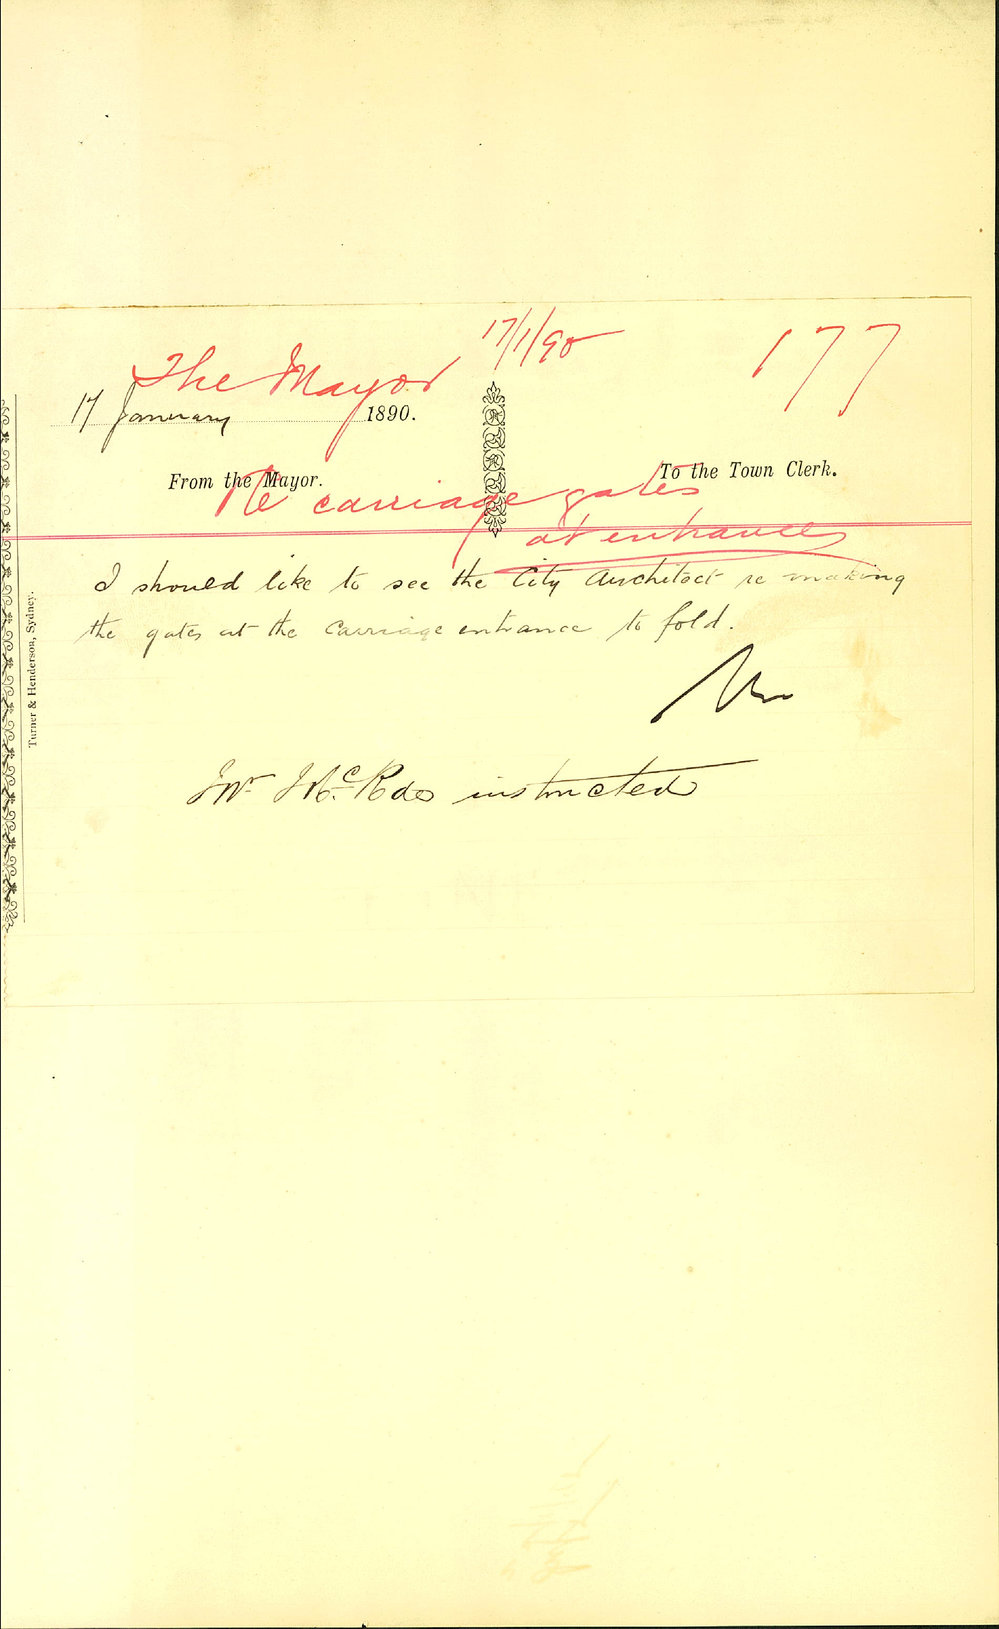 17/1/90
177
The Mayor
17 January 1890.
From the Mayor.
To the Town Clerk.
Re carriage gates
at entrance
I should like to see the City Architect re making
the gates at the carriage entrance to fold.
Mr McRae instructed
Turner & Henderson, Sydney.